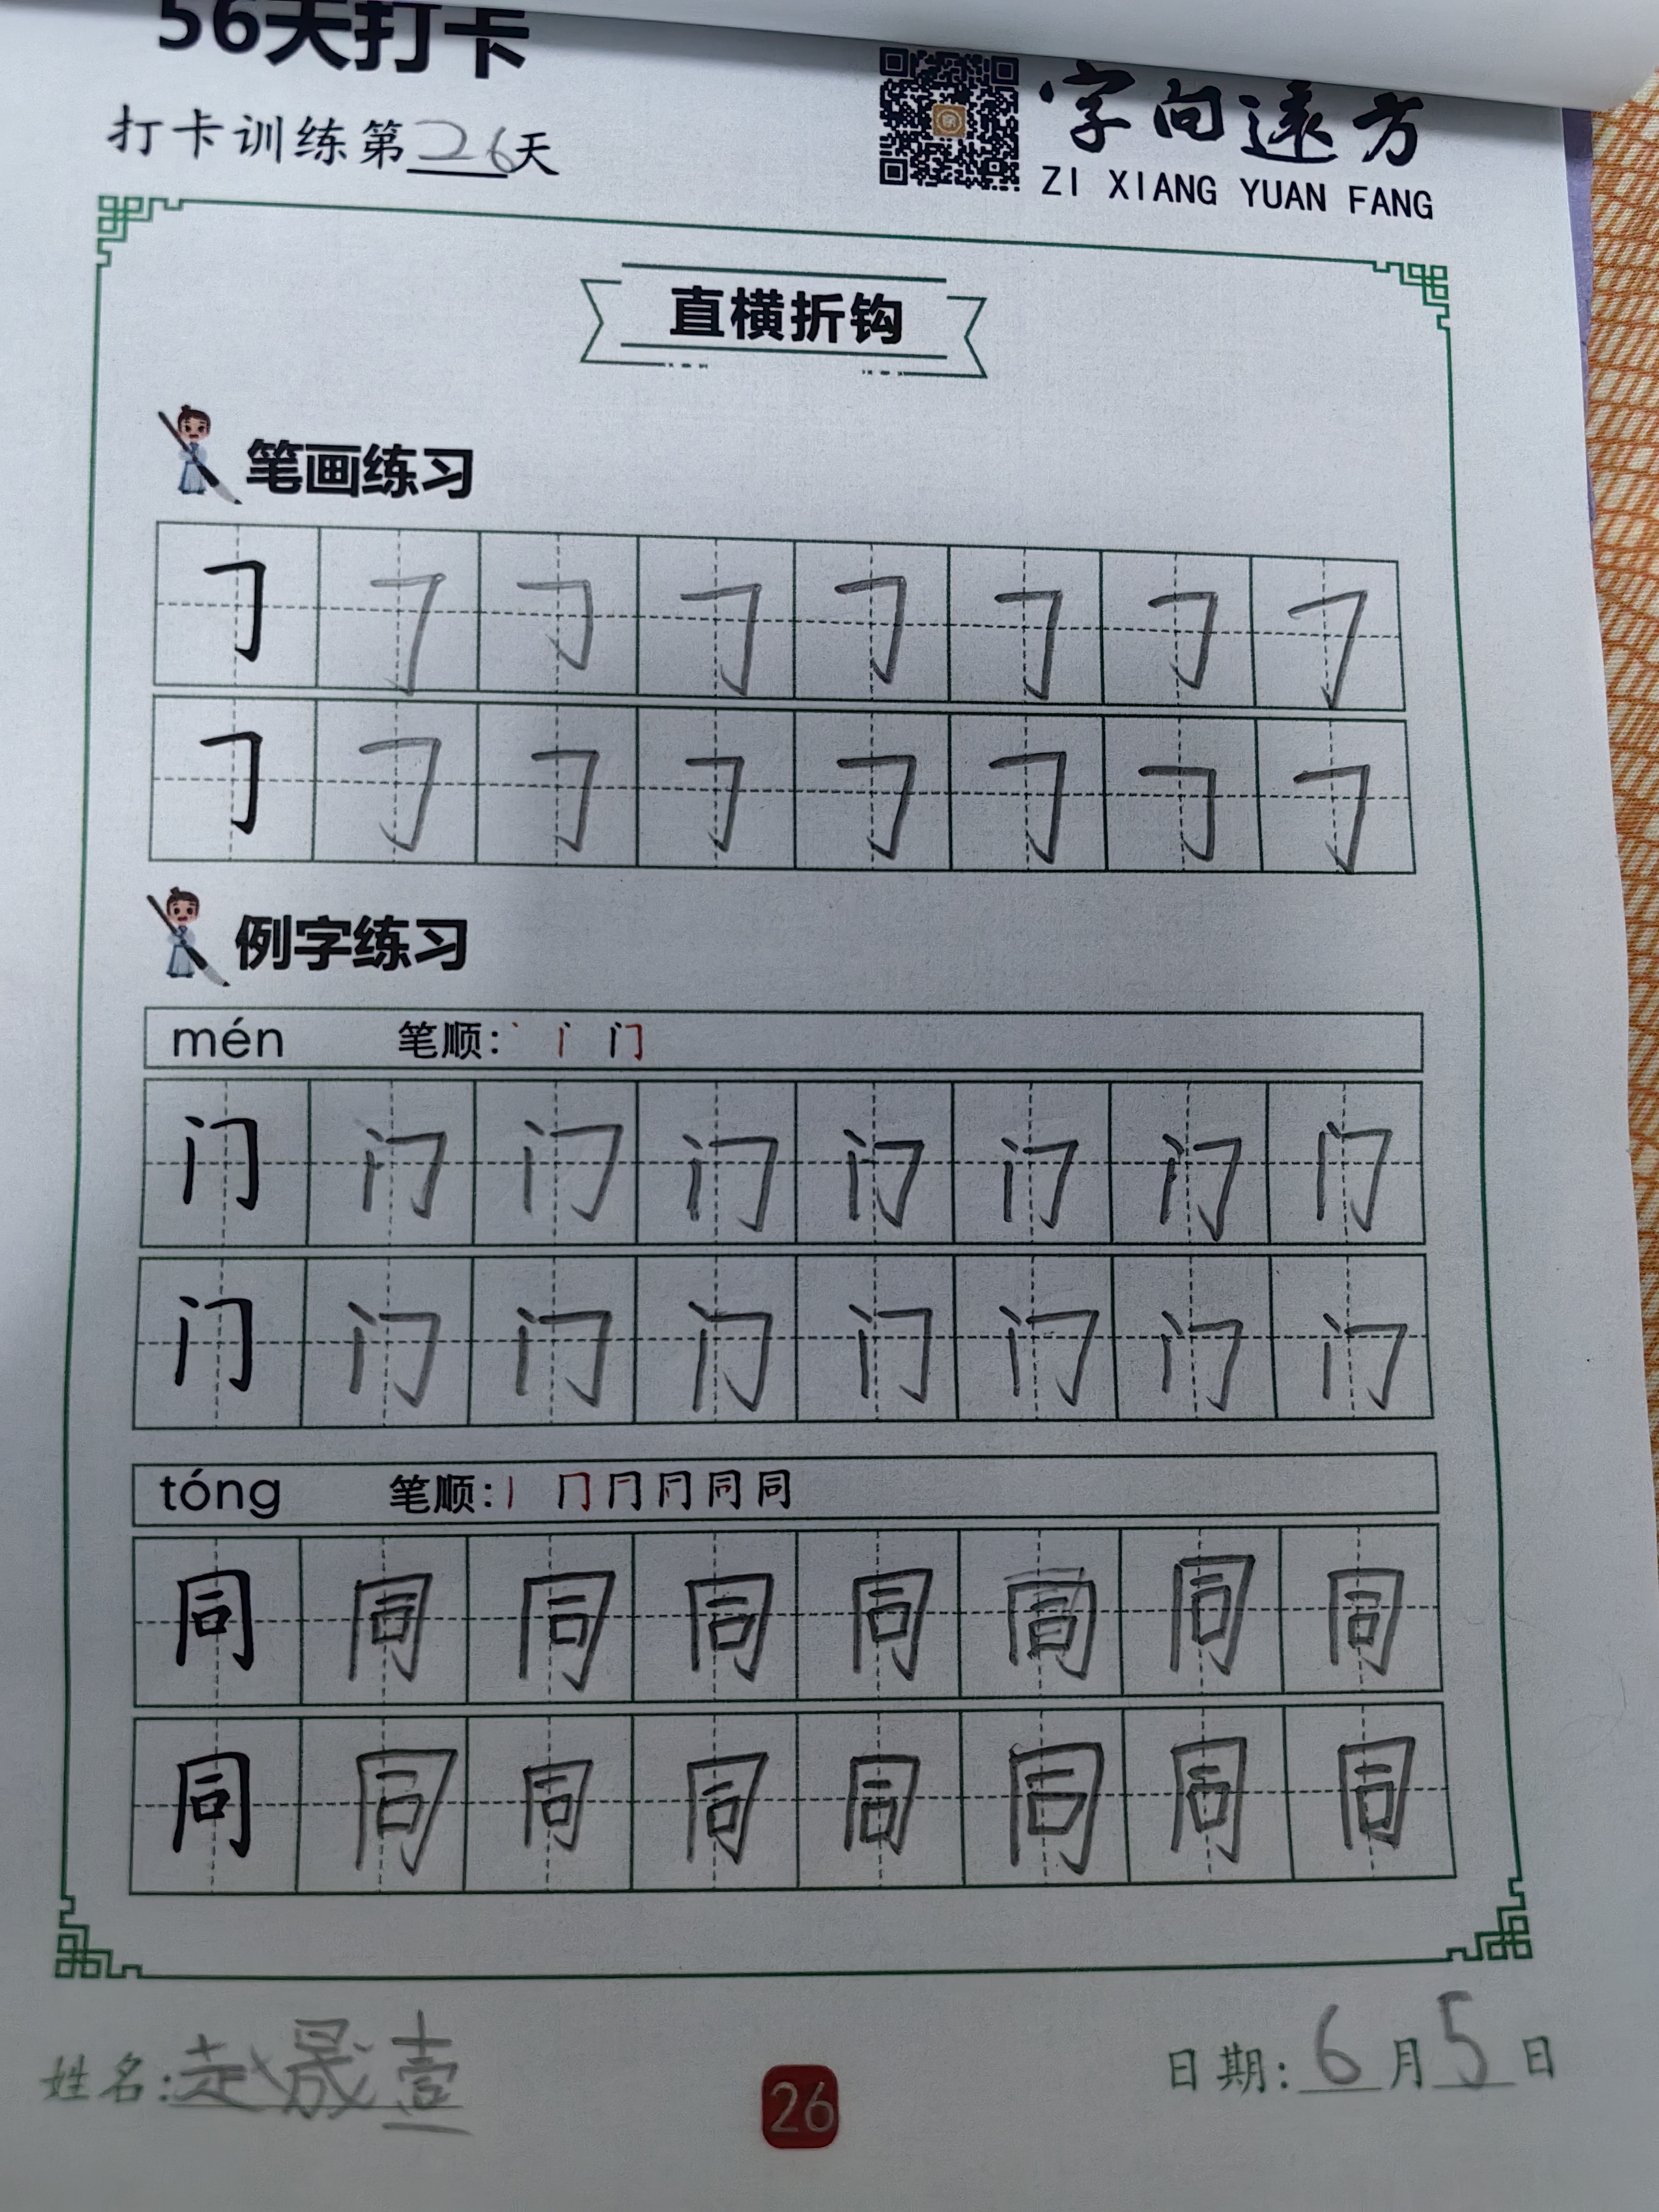 56天打卡
打卡训练第26天
字向远方
ZI XIANG YUAN FANG
直横折钩
笔画练习
𠃌 𠃌 𠃌 𠃌 𠃌 𠃌 𠃌 𠃌
𠃌 𠃌 𠃌 𠃌 𠃌 𠃌 𠃌 𠃌
例字练习
mén 笔顺: 丶 丨 门
门 门 门 门 门 门 门 门
门 门 门 门 门 门 门 门
tóng 笔顺: 丨 冂 同 同
同 同 同 同 同 同 同 同
同 同 同 同 同 同 同 同
姓名:赵晟壹
26
日期:6月5日